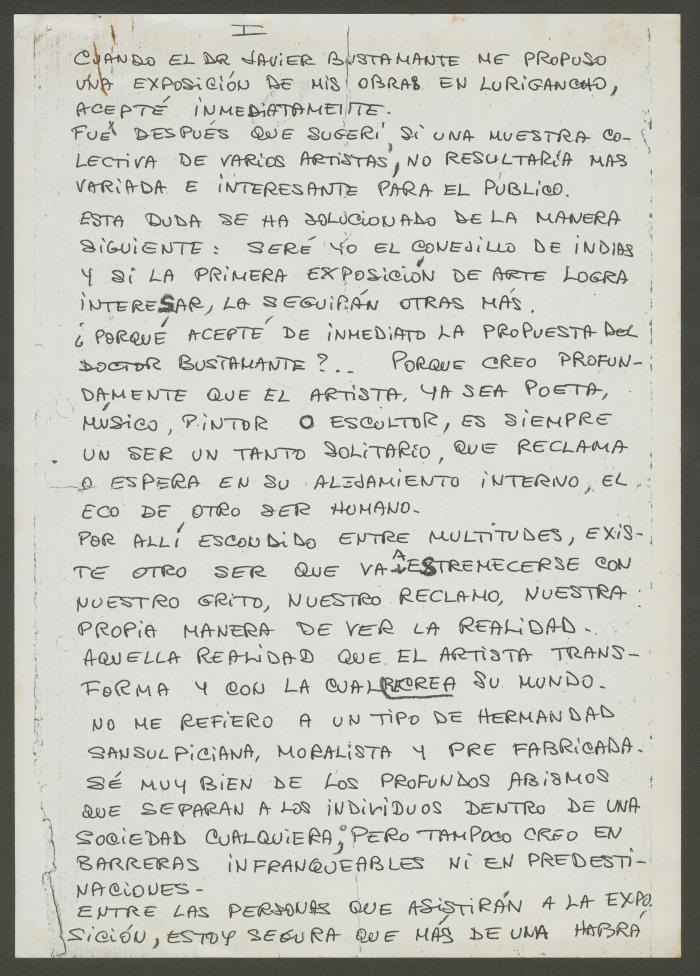 I
CUANDO EL DR JAVIER BUSTAMANTE ME PROPUSO
UNA EXPOSICIÓN DE MIS OBRAS EN LURIGANCHO,
ACEPTÉ INMEDIATAMENTE.
FUÉ DESPUÉS QUE SUGERÍ, SI UNA MUESTRA CO-
LECTIVA DE VARIOS ARTISTAS, NO RESULTARÍA MAS
VARIADA E INTERESANTE PARA EL PÚBLICO.
ESTA DUDA SE HA SOLUCIONADO DE LA MANERA
SIGUIENTE: SERÉ YO EL CONEJILLO DE INDIAS
Y SI LA PRIMERA EXPOSICIÓN DE ARTE LOGRA
INTERESAR, LA SEGUIRÁN OTRAS MÁS.
¿PORQUÉ ACEPTÉ DE INMEDIATO LA PROPUESTA DEL
DOCTOR BUSTAMANTE?.. PORQUE CREO PROFUN-
DAMENTE QUE EL ARTISTA, YA SEA POETA,
MÚSICO, PINTOR O ESCULTOR, ES SIEMPRE
UN SER UN TANTO SOLITARIO, QUE RECLAMA
O ESPERA EN SU ALEJAMIENTO INTERNO, EL
ECO DE OTRO SER HUMANO.
POR ALLÍ ESCONDIDO ENTRE MULTITUDES, EXIS-
TE OTRO SER QUE VA A ESTREMECERSE CON
NUESTRO GRITO, NUESTRO RECLAMO, NUESTRA
PROPIA MANERA DE VER LA REALIDAD.
AQUELLA REALIDAD QUE EL ARTISTA TRANS-
FORMA Y CON LA CUAL RECREA SU MUNDO.
NO ME REFIERO A UN TIPO DE HERMANDAD
SANSULPICIANA, MORALISTA Y PRE FABRICADA.
SÉ MUY BIEN DE LOS PROFUNDOS ABISMOS
QUE SEPARAN A LOS INDIVIDUOS DENTRO DE UNA
SOCIEDAD CUALQUIERA; PERO TAMPOCO CREO EN
BARRERAS INFRANQUEABLES NI EN PREDESTI-
NACIONES-
ENTRE LAS PERSONAS QUE ASISTIRÁN A LA EXPO-
SICIÓN, ESTOY SEGURA QUE MÁS DE UNA HABRÁ